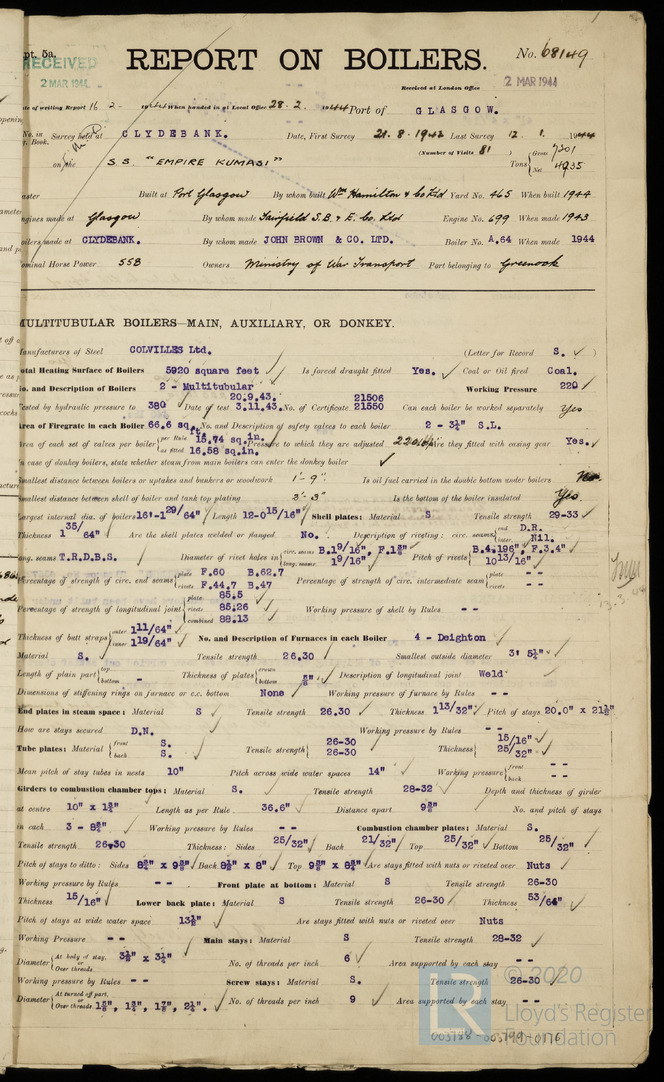 pt. 5a.
REPORT ON BOILERS.
No. 68149
RECEIVED
2 MAR 1944
Received at London Office
2 MAR 1944
of writing Report 16 2 1944 When handed in at Local Office 28.2. 1944 Port of GLASGOW.
No. in Survey held at CLYDEBANK. Date, First Survey 21.8.1942 Last Survey 12. 1. 1944
Book. (Number of Visits 81)
on the S.S. "EMPIRE KUMASI" Tons Gross 7201 Net 4935
Built at Port Glasgow By whom built Wm Hamilton & Co Ltd Yard No. 465 When built 1944
Engines made at Glasgow By whom made Fairfield S.B. & E. Co Ltd Engine No. 699 When made 1943
Boilers made at CLYDEBANK. By whom made JOHN BROWN & CO. LTD. Boiler No. A.64 When made 1944
Nominal Horse Power 558 Owners Ministry of War Transport Port belonging to Greenock
MULTITUBULAR BOILERS—MAIN, AUXILIARY, OR DONKEY.
Manufacturers of Steel COLVILLES Ltd. (Letter for Record S. )
Total Heating Surface of Boilers 5920 square feet Is forced draught fitted Yes. Coal or Oil fired Coal.
No. and Description of Boilers 2 - Multitubular Working Pressure 220
Tested by hydraulic pressure to 380 Date of test 20.9.43. 3.11.43. No. of Certificate 21506 21550 Can each boiler be worked separately Yes
Area of Firegrate in each Boiler 66.6 sq. ft. No. and Description of safety valves to each boiler 2 - 3¼" S.L.
Area of each set of valves per boiler per Rule 15.74 sq.in. as fitted 16.58 sq.in. Pressure to which they are adjusted 220 Are they fitted with easing gear Yes.
In case of donkey boilers, state whether steam from main boilers can enter the donkey boiler
Smallest distance between boilers or uptakes and bunkers or woodwork 1'- 9" Is oil fuel carried in the double bottom under boilers
Smallest distance between shell of boiler and tank top plating 3'- 3" Is the bottom of the boiler insulated Yes
Largest internal dia. of boilers 16'-1 29/64" Length 12-0 15/16" Shell plates: Material S Tensile strength 29-33
Thickness 1 35/64" Are the shell plates welded or flanged No. Description of riveting: circ. seams end D.R. inter. Nil.
long. seams T.R.D.B.S. Diameter of rivet holes in circ. seams B.1 9/16" F.1⅜" long. seams 1 9/16" Pitch of rivets B.4.196", F.3.4" 10 13/16"
Percentage of strength of circ. end seams plate F.60 B.62.7 rivets F.44.7 B.47 Percentage of strength of circ. intermediate seam plate - - rivets - -
Percentage of strength of longitudinal joint plate 85.5 rivets 85.26 combined 88.13 Working pressure of shell by Rules - -
Thickness of butt straps outer 1 11/64" inner 1 19/64" No. and Description of Furnaces in each Boiler 4 - Deighton
Material S. Tensile strength 26.30 Smallest outside diameter 3' 5¼"
Length of plain part top - bottom - Thickness of plates crown bottom ⅝" Description of longitudinal joint Weld
Dimensions of stiffening rings on furnace or c.c. bottom None Working pressure of furnace by Rules - -
End plates in steam space: Material S Tensile strength 26.30 Thickness 1 13/32" Pitch of stays 20.0" x 21½"
How are stays secured D.N. Working pressure by Rules - -
Tube plates: Material front S. back S. Tensile strength 26-30 26-30 Thickness 15/16" 25/32"
Mean pitch of stay tubes in nests 10" Pitch across wide water spaces 14" Working pressure front - - back - -
Girders to combustion chamber tops: Material S. Tensile strength 28-32 Depth and thickness of girder
at centre 10" x 1¾" Length as per Rule 36.6" Distance apart 9⅜" No. and pitch of stays
in each 3 - 8¾" Working pressure by Rules - - Combustion chamber plates: Material S.
Tensile strength 26.30 Thickness: Sides 25/32" Back 21/32" Top 25/32" Bottom 25/32"
Pitch of stays to ditto: Sides 8¾" x 9⅜" Back 8½" x 8" Top 9⅜" x 8¾" Are stays fitted with nuts or riveted over Nuts
Working pressure by Rules - - Front plate at bottom: Material S Tensile strength 26-30
Thickness 15/16" Lower back plate: Material S Tensile strength 26-30 Thickness 53/64"
Pitch of stays at wide water space 13½" Are stays fitted with nuts or riveted over Nuts
Working Pressure - - Main stays: Material S Tensile strength 28-32
Diameter At body of stay, or Over threads 3½" x 3¼" No. of threads per inch 6 Area supported by each stay - -
Working pressure by Rules - - Screw stays: Material S. Tensile strength 26-30
Diameter At turned off part, or Over threads 1⅝", 1¾", 1⅞", 2¼". No. of threads per inch 9 Area supported by each stay - -
LR
© 2020
Lloyd's Register
Foundation
003788-003799-0176